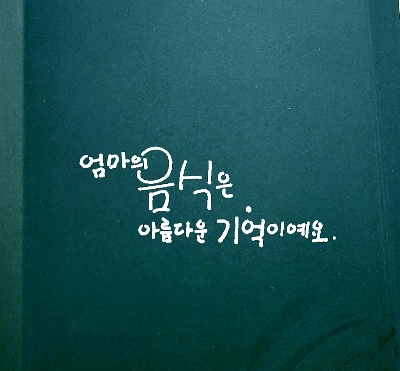 엄마의
음식은
아름다운 기억이예요.